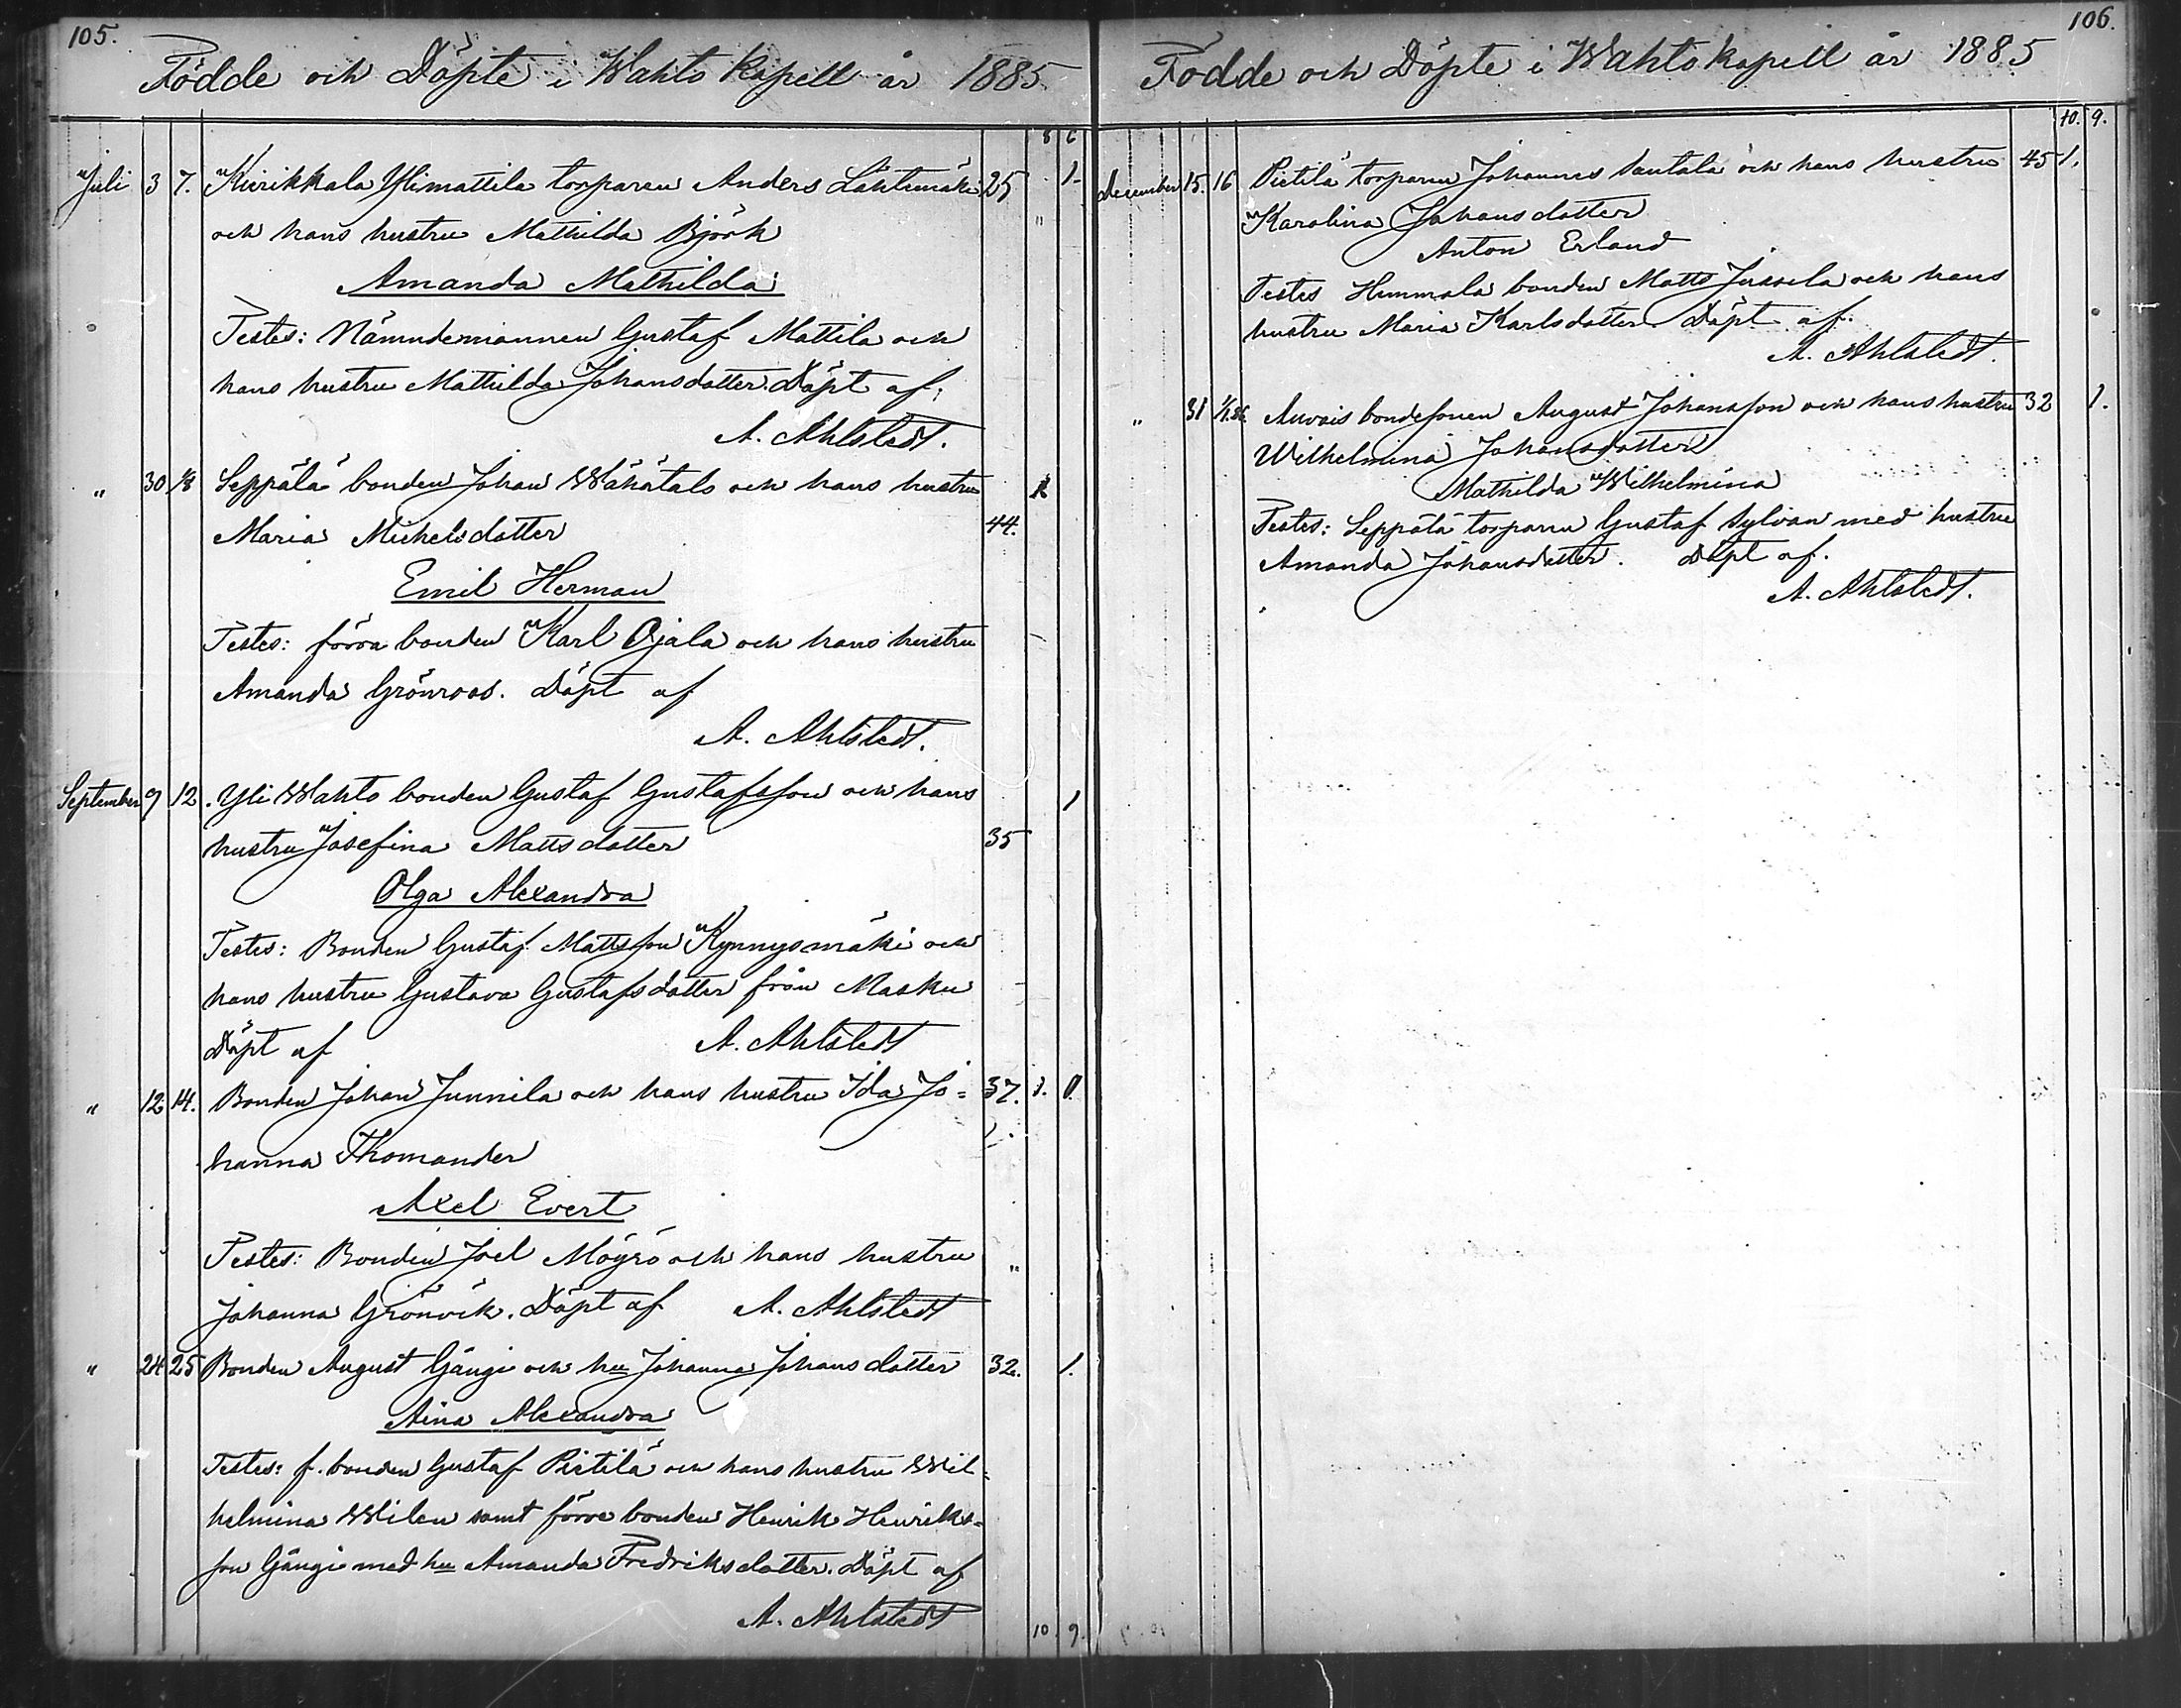 105.
Födde och Döpte i Wahto Kapell år 1885
8 6
Juli 3 7. Kurikkala Ylimattila torparen Anders Lähtemäki 25 1.
och hans hustru Mathilda Björk "
Amanda Mathilda
Testes: Nämndemannen Gustaf Mattila och
hans hustru Mathilda Johansdotter. Döpt af,
A. Ahlstedt.
" 30 1/8 Seppälä bonden Johan Wähätalo och hans hustru 1
Maria Michelsdotter 44.
Emil Herman
Testes: förra bonden Karl Ojala och hans hustru
Amanda Grönroos. Döpt af
A. Ahlstedt.
September 9 12. Yli Wahto bonden Gustaf Gustafsson och hans 1
hustru Josefina Mattsdotter 35
Olga Alexandra
Testes: Bonden Gustaf Mattsson Kynnysmäki och
hans hustru Gustava Gustafsdotter från Masku
Döpt af A. Ahlstedt
" 12 14. Bonden Johan Junnila och hans hustru Ida Jo= 37. 1. 0.
hanna Thomander
Axel Evert
Testes: Bonden Joel Möyrö och hans hustru "
Johanna Grönvik. Döpt af A. Ahlstedt
" 24 25 Bonden August Gängi och hu Johanna Johansdotter 32. 1.
Aina Alexandra
Testes: f. bonden Gustaf Pietilä och hans hustru Wil=
helmina Wilen samt förre bonden Henrik Henriks=
son Gängi med hu Amanda Fredriksdotter. Döpt af
A. Ahlstedt
10. 9.
106.
Födde och Döpte i Wahto kapell år 1885
10. 9.
December 15. 16 Pietilä torparen Johannes Santala och hans hustru 45 1.
Karolina Johansdotter
Anton Erland
Testes Hummala bonden Matts Jussila och hans
hustru Maria Karlsdotter. Döpt af.
A. Ahlstedt.
" 31 1/1.86. Auvais bondesonen August Johansson och hans hustru 32 1.
Wilhelmina Johansdotter
Mathilda Wilhelmina
Testes: Seppälä torparen Gustaf Sylvan med hustru
Amanda Johansdotter. Döpt af.
A. Ahlstedt.